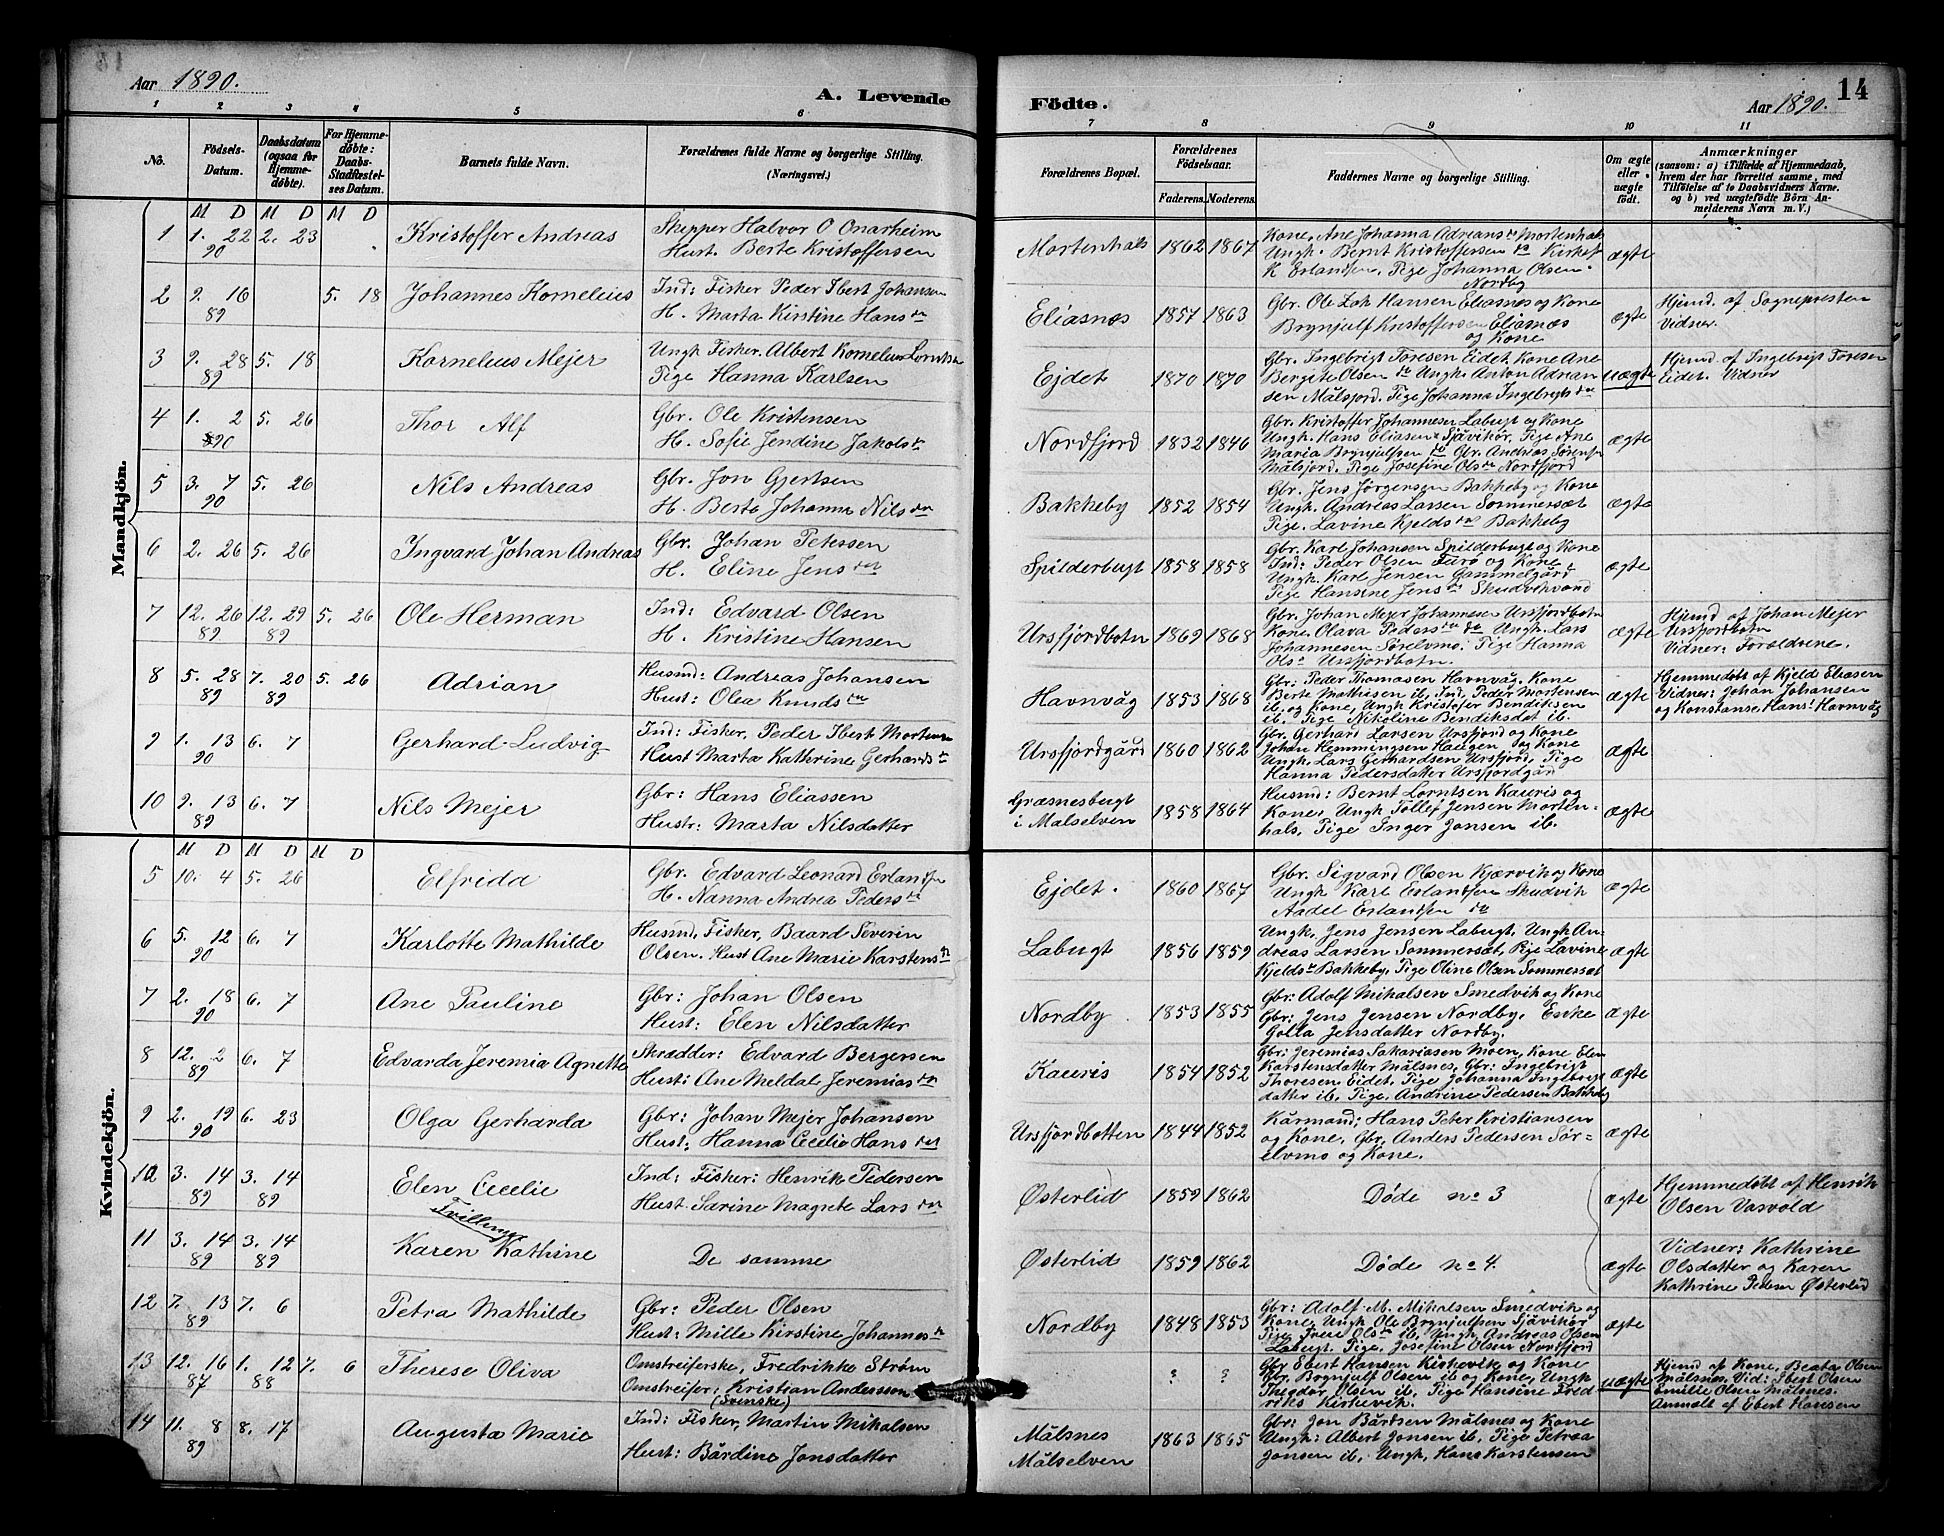 Aar 1890.
A. Levende
1 2 3 4 5 6
No.
Fødsels-
Datum.
Daabsdatum
(ogsaa for
Hjemme-
døbte).
For Hjemme-
døbte:
Daabs-
Stadfæstel-
ses Datum.
Barnets fulde Navn.
Forældrenes fulde Navne og borgerlige Stilling.
(Næringsvei.)
Mandkjön.
M D M D M D
1 1. 22 2. 23 Kristoffer Andreas Skipper Halvor O Onarheim
90 Hust. Berte Kristoffersen
2 9. 16 5. 18 Johannes Kornelius Ind: Fisker Peder Ibert Johansen
89 H. Marta Kirstine Hans dn
3 9. 28 5. 18 Kornelius Mejer Ungk Fisker. Albert Kornelius Lorntsen
89 Pige Hanna Karlsen
4 1. 2 5. 26 Thor Alf Gbr. Ole Kristensen
90 H. Sofie Jendine Jakobs dn
5 3. 7 5. 26 Nils Andreas Gbr. Jon Gjertsen
90 H. Berte Johanna Nils dn
6 2. 26 5. 26 Ingvard Johan Andreas Gbr. Johan Petersen
H. Eline Jens dn
7 12. 26 12. 29 5. 26 Ole Herman Ind: Edvard Olsen
89 89 H. Kristine Hansen
8 5. 28 7. 20 5. 26 Adrian Husmd: Andreas Johansen
89 89 Hust: Olea Knuds dn
9 1. 13 6. 7 Gerhard Ludvig Ind: Fisker, Peder Ibert Mortensen
90 Hust Marta Kathrine Gerhards dn
10 9. 13 6. 7 Nils Mejer Gbr: Hans Eliassen
89 Hustr: Marta Nilsdatter
Kvindekjön.
M D M D M D
5 10. 4 5. 26 Elfrida Gbr. Edvard Leonard Erlandsen
H. Nanna Andrea Peders dn
6 5. 12 6. 7 Karlotte Mathilde Husmd, Fisker, Baard Severin
90 Olsen. Hust Ane Marie Karstens dn
7 2. 18 6. 7 Ane Pauline Gbr: Johan Olsen
90 Hust: Elen Nilsdatter
8 12. 2 6. 7 Edvarda Jeremia Agnette Skrædder: Edvard Bergersen
89 Hust: Ane Meldal Jeremias dn
9 2. 19 6. 23 Olga Gerharda Gbr: Johan Mejer Johansen
90 Hust: Hanna Cecelie Hans dn
10 3. 14 3. 14 Elen Cecelie Ind: Fisker: Henrik Pedersen
89 89 Hust. Sarine Magrete Lars dn
Tvillinge
11 3. 14 3. 14 Karen Kathrine De samme
89 89
12 7. 13 7. 6 Petra Mathilde Gbr: Peder Olsen
89 Hust: Mille Kirstine Johannes dn
13 12. 16 1. 12 7. 6 Therese Oliva Omstreiferske, Fredrikke Strøm
87 88 Omstreifer, Kristian Andersson
(Svenske)
14 11. 8 8. 17 Augusta Marie Ind: Fisker, Martin Mikalsen
89 Hust: Bårdine Jonsdatter
Födte.
Aar 1890.
14
7 8 9 10 11
Forældrenes Bopæl.
Forældrenes
Fødselsaar.
Faderens. Moderens.
Faddernes Navne og borgerlige Stilling.
Om ægte
eller
uægte
født.
Anmærkninger
(saasom: a) i Tilfælde af Hjemmedaab,
hvem der har forrettet samme, med
Tilføielse af to Daabsvidners Navne.
og b) ved uægtefødte Börn An-
melderens Navn m. V.)
Mortenhals 1862 1867 Kone, Ane Johanna Adrians dn Mortenhals ægte
Ungk. Bernt Kristoffersen do Kirkef
K Erlandsen, Pige Johanna Olsen
Nordby
Eliasnes 1857 1863 Gbr. Ole Lok Hansen Eliasnes og Kone ægte Hjemd. af Sognepresten
Brynjulf Kristoffersen Eliasnæs Vidner.
og Kone
Ejdet 1870 1870 Gbr. Ingebrigt Toresen Eidet. Kone Ane uægte Hjemd. af Ingebrigt Toresen
Bergite Olsen do Ungk. Anton Adrian Eidet. Vidner
sen Målsjord. Pige Johanna Ingebrigts dn
Nordfjord 1832 1846 Gbr. Kristoffer Johannesen Labugt og Kone ægte
Ungk. Hans Eliasen Sjåvikør, Pige Ane
Maria Brynjulfsen do Gbr. Andreas Sørensen
Målsjord. Pige Josefine Ols dn Nordfjord
Bakkeby 1852 1854 Gbr. Jens Jørgensen Bakkeby og Kone ægte
Ungk. Andreas Larsen Sommersæt
Pige. Lavine Kjelds dn Bakkeby
Spilderbugt 1858 1858 Gbr. Karl Johansen Spilderbugt og Kone ægte
Ind: Peder Olsen Furø og Kone
Ungk. Karl Jensen Gammelgård
Pige Hansine Jens dn Skudvikvand
Ursfjordbotn 1869 1868 Gbr. Johan Mejer Johannesen Ursfjordbotn ægte Hjemd af Johan Mejer
Kone. Olava Peders dn do Ungk. Lars Ursfjordbotn
Johannesen Sørelvmo. Pige Hanna Vidner: Forældrene.
Ols dn Ursfjordbotn.
Havnvåg 1853 1868 Gbr: Peder Thomasen Havnvåg, Kone ægte Hjemmedøbt af Kjeld Eliasen
Berte Mathisen ib, Ind, Peder Mortensen Vidner: Johan Johansen
ib, og Kone, Ungk Kristofer Bendiksen og Konstanse Hans' Havnvåg
ib. Pige Nikoline Bendiksdet ib.
Ursfjordgård 1860 1862 Gbr. Gerhard Larsen Ursfjord og Kone ægte
Johan Hemmingsen Haugen og Kone
Ungk, Lars Gerhardsen Ursfjord, Pige
Hanna Pedersdatter Ursfjordgår
Græsnesbugt 1858 1864 Husmd: Bernt Lorntsen Kauris og ægte
i Malselven Kone, Ungk Tollef Jensen Morten-
hals, Pige Inger Jonsen ib.
Ejdet. 1860 1867 Gbr. Sigvard Olsen Kjærvik og Kone ægte
Ungk Karl Erlandsen Skudvik
Aadel Erlandsen do
Labugt 1856 1859 Ungk, Jens Jensen Labugt, Ungk An- ægte
dreas Larsen Sommersæt, Pige Lavine
Kjelds dn Bakkeby, Pige Oline Olsen Sommersæt
Nordby 1853 1855 Gbr: Adolf Mikalsen Smedvik og Kone ægte
Gbr: Jens Jensen Nordby, Enke
Golla Jensdatter Nordby.
Kauris 1854 1852 Gbr: Jeremias Sakariasen Moen, Kone Elen ægte
Karstensdatter Målsnes, Gbr: Ingebrigt
Thoresen Eidet, Pige Johanna Ingebrigt
datter ib, Pige, Andrine Pedersen Bakkeby
Ursfjordbotten 1844 1852 Kårmand; Hans Peter Kristiansen ægte
og Kone, Gbr, Anders Pedersen Sør-
elvmo og Kone.
Østerlid 1859 1862 Døde no 3 ægte Hjemmedøbt af Henrik
Olsen Vasvold
Østerlid 1859 1862 Døde no 4. ægte Vidner: Kathrine
Olsdatter og Karen
Kathrine Peders Østerlid
Nordby 1848 1853 Gbr: Adolf M. Mikalsen Smedvik og ægte
Kone, Ungk Ole Brynjulfsen Sjåvikør
Pige Ols dn ib, Ungk, Andreas Olsen
Labugt. Pige, Josefine Olsen Nordfjord
? ? Gbr Ebert Hansen Kirkevik og Kone uægte Hjemd af Kone, Beata Olsen
Gbr, Brynjulf Olsen ib og Kone, Ungk Målsnes, Vid: Ibert Olsen
Theodor Olsen ib, Pige Hansine Fred Emilie Olsen Målsnes.
riks Kirkevik. Anmelt af Ebert Hansen
Målsnes 1863 1865 Gbr: Jon Bårdsen Målsnes og Kone
Målselven Ungk: Albert Jonsen ib, Pige Petraa
Jonsen ib, Ungk, Hans Karstensen